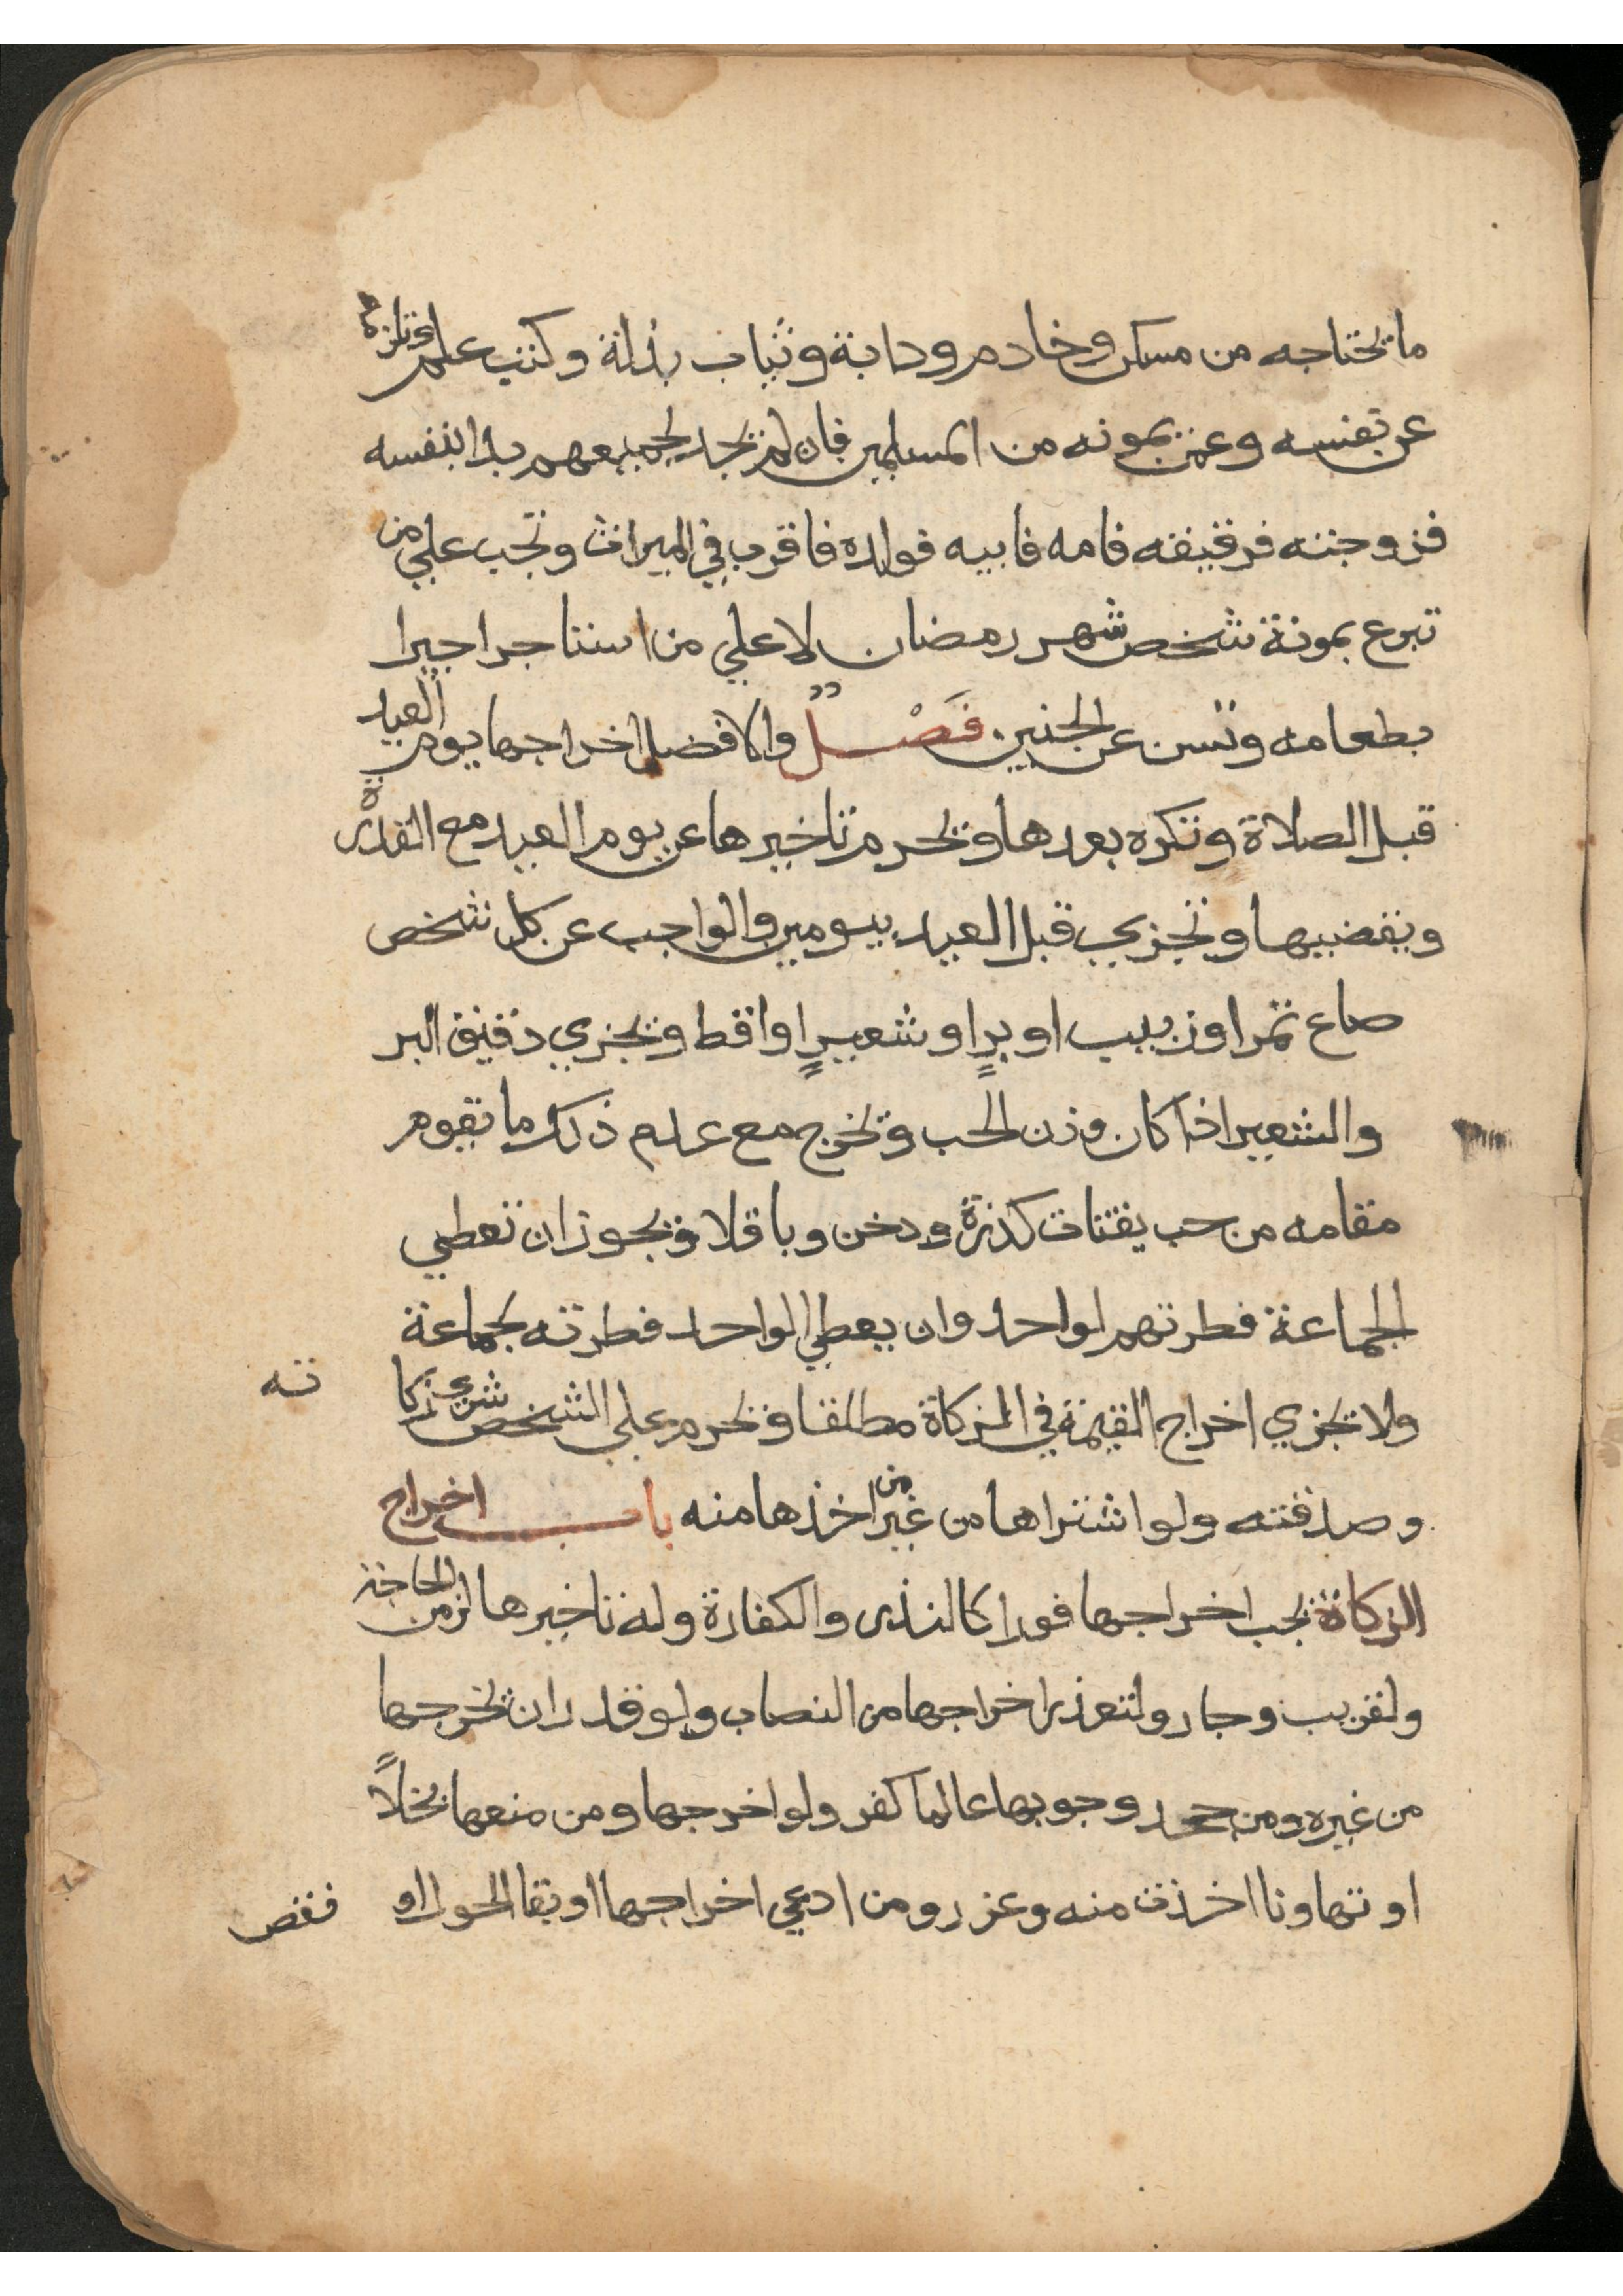 ما يحتاجه من مسكن وخادم ودابة وثياب بذلة وكتب علم وتلزمه
عن نفسه وعمن يمونه من المسلمين فان لم يجد لجميعهم بدا بنفسه
فزوجته فرقيقه فامه فابيه فولده فاقرب في الميراث وتجب علي من
تبرع بمونة شخص شهر رمضان لا علي من استاجر اجيرا
بطعامه وتسن عن الجنين فَصْلٌ والافضل اخراجها يوم العيد
قبل الصلاة وتكره بعدها ويحرم تاخيرها عن يوم العيد مع القدرة
ويقضيها وتجزي قبل العيد بيومين والواجب عن كل شخص
صاع تمر او زبيب او برٍ او شعيرٍ او اقط ويجزي دقيق البر
والشعير اذا كان وزن الحب ويخرج مع عدم ذلك ما يقوم
مقامه من حب يقتات كذرة ودخن وباقلا ويجوز ان تعطي
الجماعة فطرتهم لواحد وان يعطي الواحد فطرته لجماعة
ولا يجزي اخراج القيمة في الزكاة مطلقا ويحرم علي الشخص شري زكا
ته
وصدقته ولو اشتراها من غير من اخذها منه باب اخراج
الزكاة يجب اخراجها فورا كالنذر والكفارة وله تاخيرها لزمن الحاجة
ولقريب وجار ولتعذر اخراجها من النصاب ولو قدر ان يخرجها
من غيره ومن جحد وجوبها عالما كفر ولو اخرجها ومن منعها بخلاً
او تهاونا اخذت منه وعزر ومن ادعي اخراجها او بقا الحول او
نقص